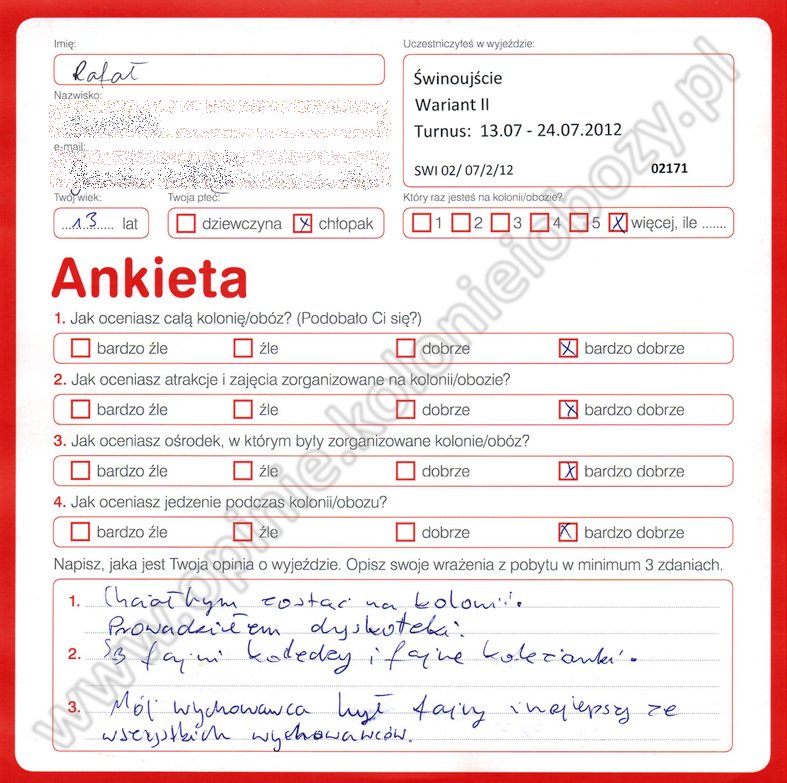 Imię:
Rafał
Uczestniczyłeś w wyjeździe:
Świnoujście
Wariant II
Turnus: 13.07 - 24.07.2012
SWI 02/ 07/2/12 02171
Nazwisko:
e-mail:
Twój wiek:
13 lat
Twoja płeć:
dziewczyna x chłopak
Który raz jesteś na kolonii/obozie?
1 2 3 4 5 x więcej, ile .......
Ankieta
1. Jak oceniasz całą kolonię/obóz? (Podobało Ci się?)
bardzo źle źle dobrze x bardzo dobrze
2. Jak oceniasz atrakcje i zajęcia zorganizowane na kolonii/obozie?
bardzo źle źle dobrze x bardzo dobrze
3. Jak oceniasz ośrodek, w którym były zorganizowane kolonie/obóz?
bardzo źle źle dobrze x bardzo dobrze
4. Jak oceniasz jedzenie podczas kolonii/obozu?
bardzo źle źle dobrze x bardzo dobrze
Napisz, jaka jest Twoja opinia o wyjeździe. Opisz swoje wrażenia z pobytu w minimum 3 zdaniach.
1. Chciałbym zostać na kolonii.
Prowadziłem dyskoteki.
2. Są fajni koledzy i fajne koleżanki.
3. Mój wychowawca był fajny i najlepszy ze
wszystkich wychowawców.
www.opinie.kolonieiobozy.pl